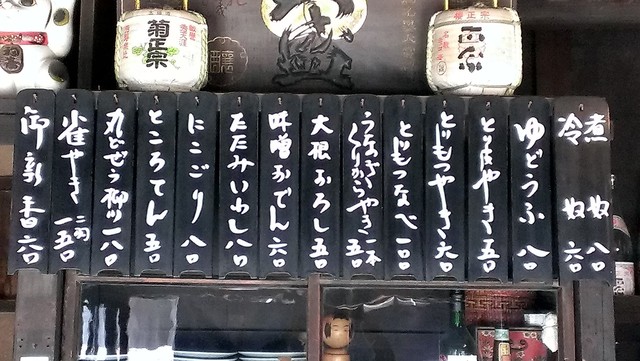 菊正宗
菊正宗
正宗
煮奴 八〇
冷奴 六〇
ゆどうふ 八〇
とり皮やき 五〇
とりもつやき 六〇
とりもつなべ 一一〇
うなぎくりからやき 一本 五〇
大根おろし 五〇
味噌おでん 六〇
たたみいわし 八〇
にこごり 八〇
ところてん 五〇
丸どぜう柳川 一八〇
雀やき 二羽 一五〇
御新香 六〇